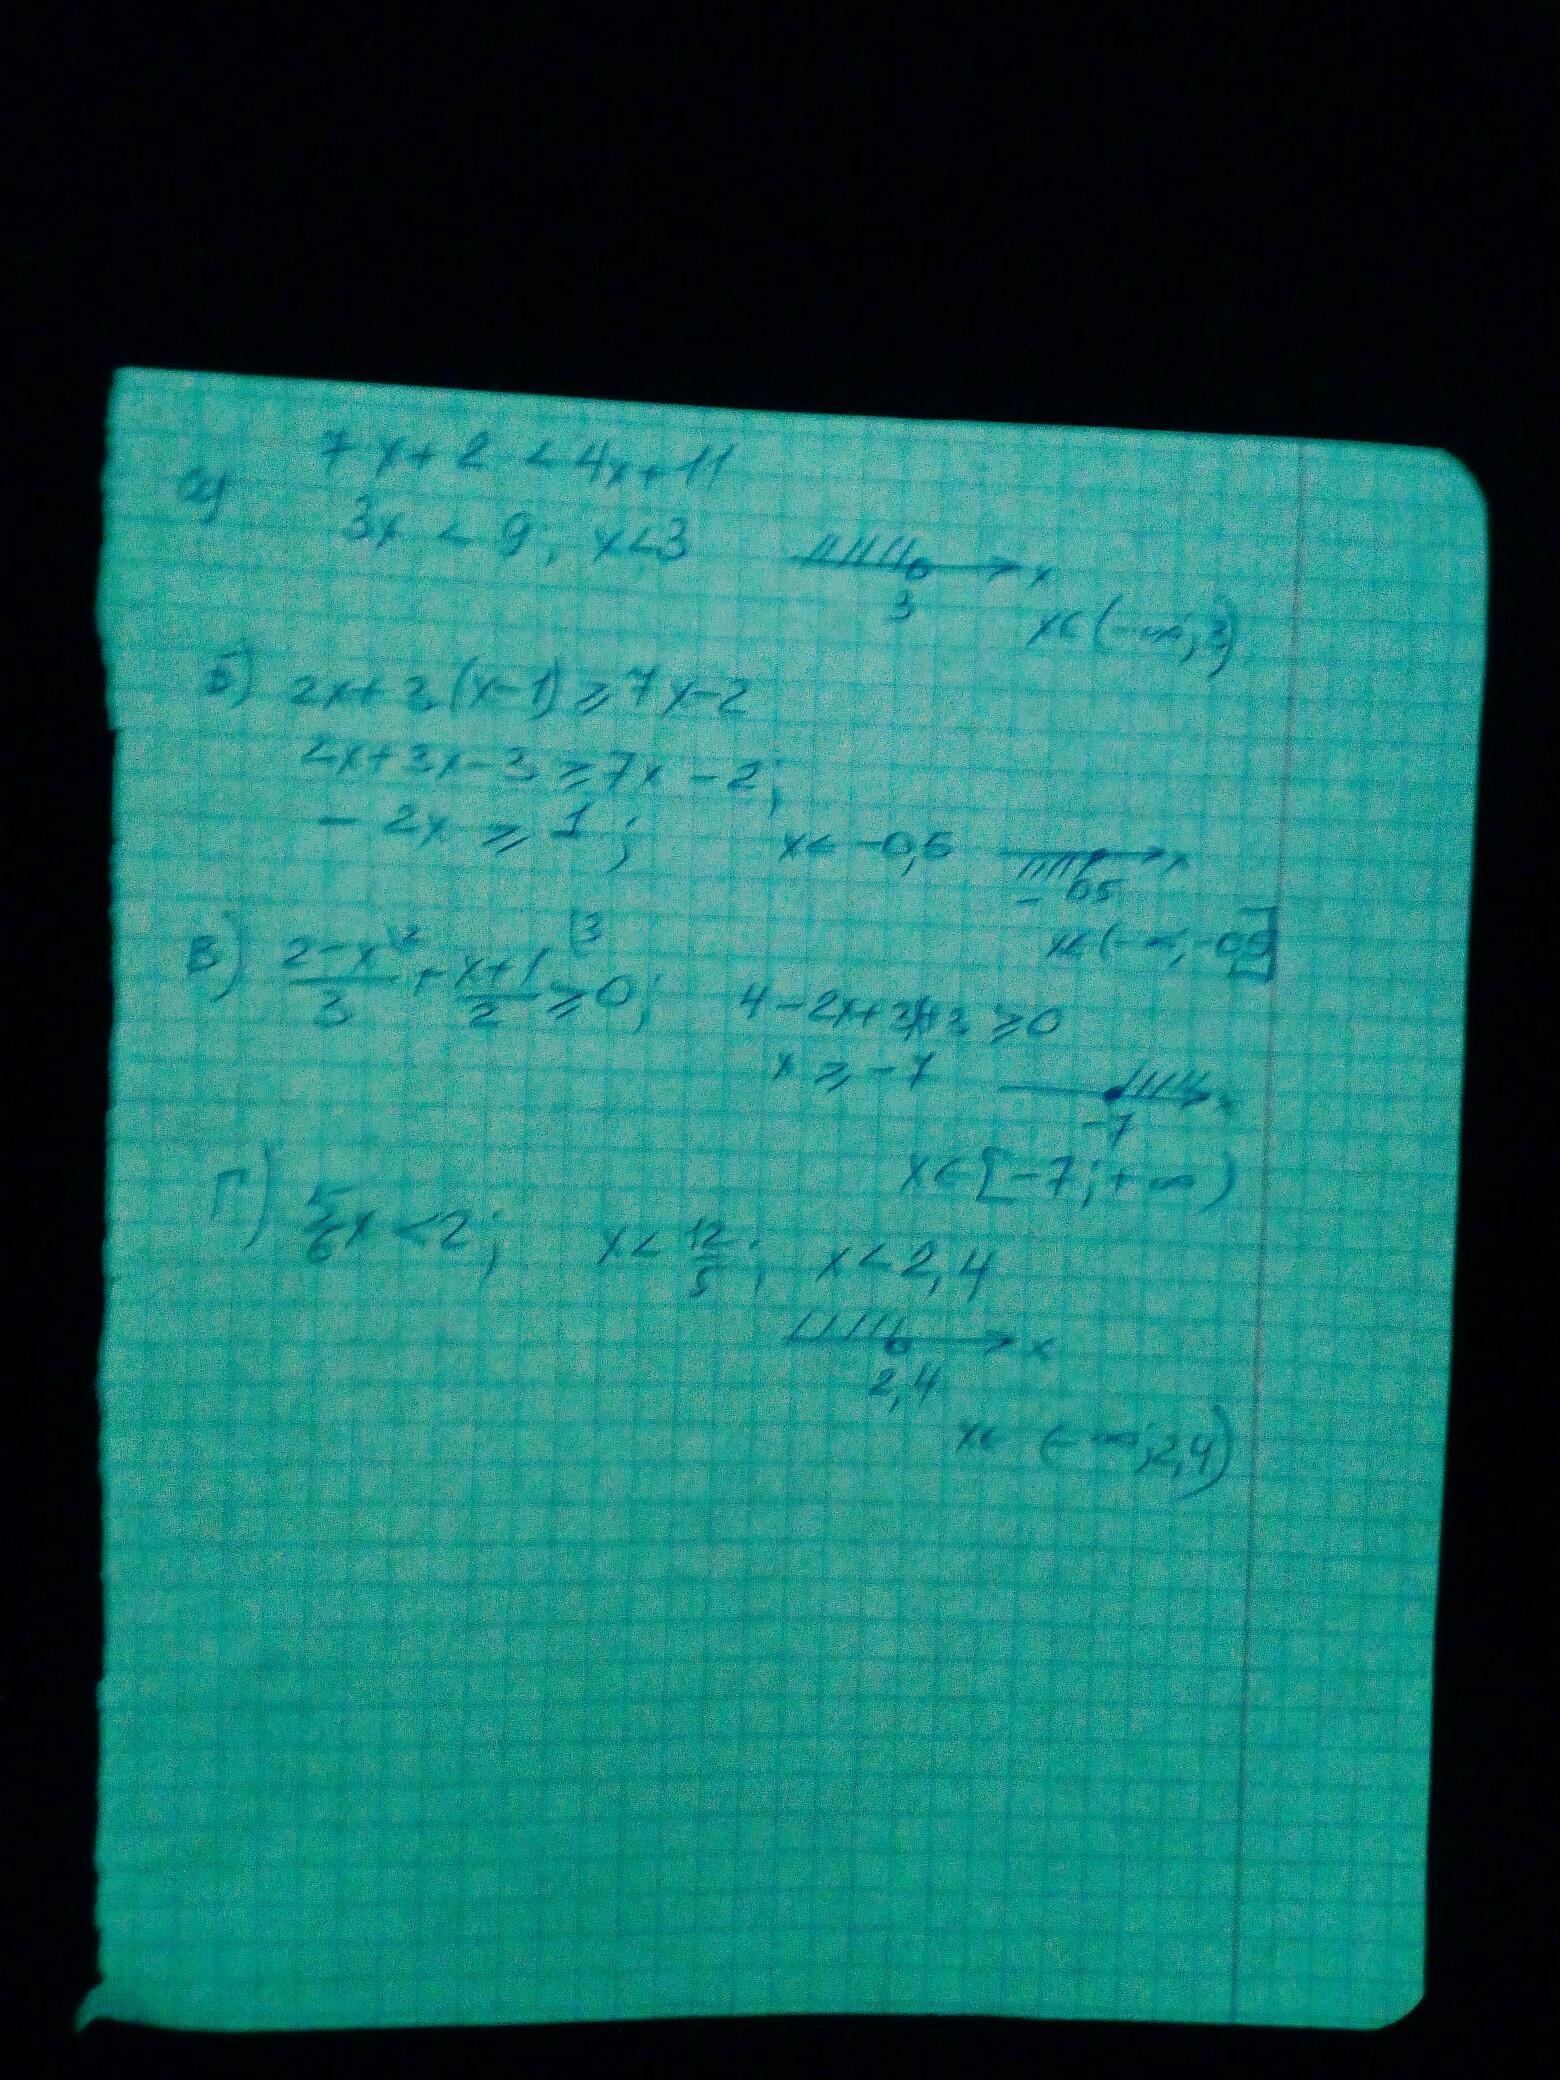 а) 7x+2 < 4x+11
3x < 9; x<3
3
x∈(-∞;3)
Б) 2x+3(x-1)⩾7x-2
2x+3x-3⩾7x-2;
-2x⩾1; x⩽-0,5
-0,5
x∈(-∞;-0,5]
В) \frac{2-x}{3}^{\2} + \frac{x+1}{2}^{\3} ⩾0; 4-2x+3x+3⩾0
x⩾-7
-7
x∈[-7;+∞)
Г) \frac{5}{6}x<2; x<\frac{12}{5}; x<2,4
2,4
x∈(-∞;2,4)